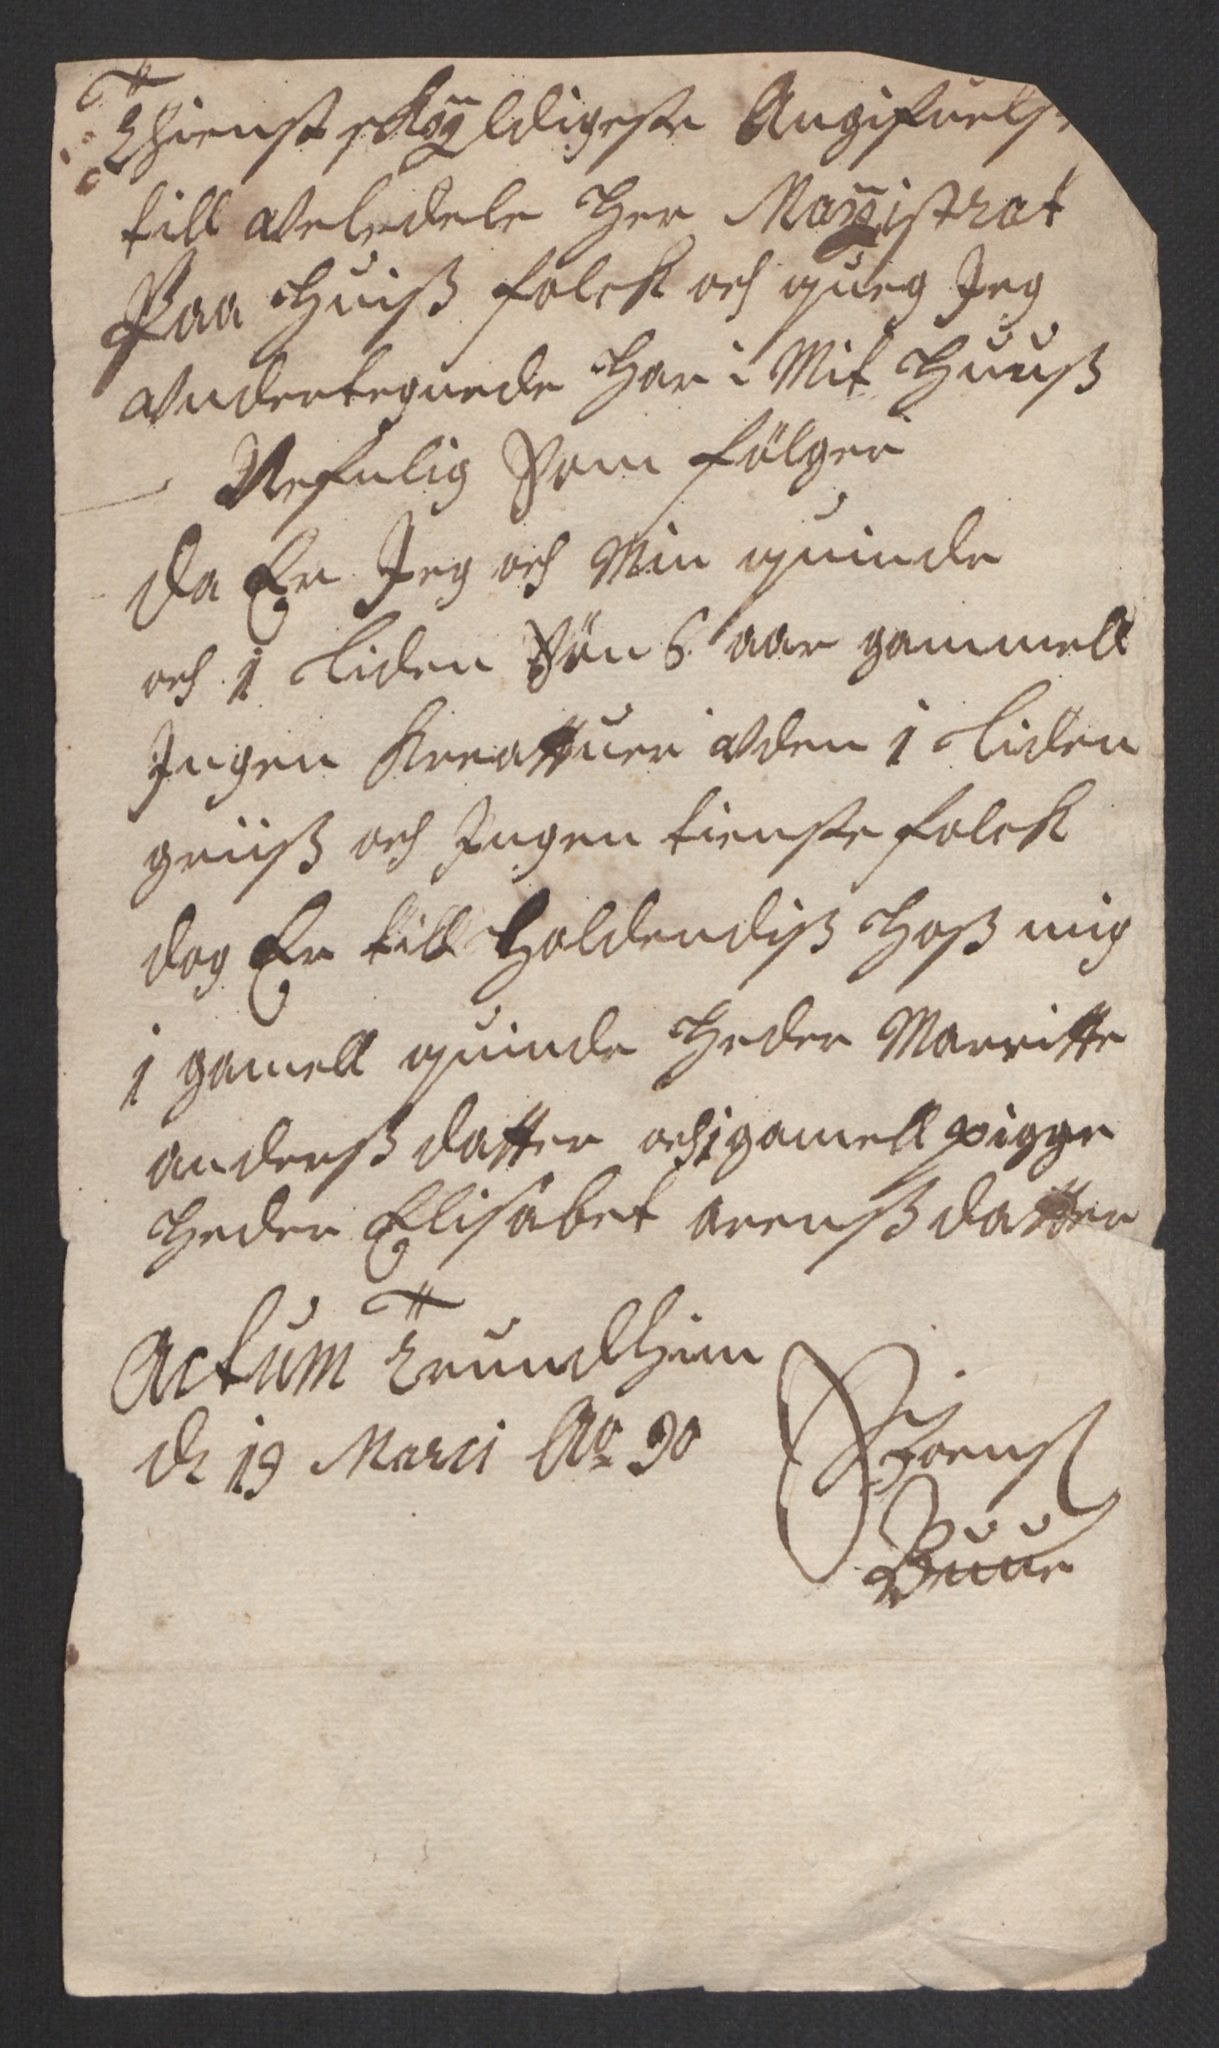 Thienst skÿldigeste Angifuelse
till velædele Her Magistrat
Paa Huiß folck och queg Jeg
vndertegnede Har i Mit Huuß
Nefnlig Som fölger
da Er Jeg och Min quinde
och 1 liden Sön 6 aar gammell
Ingen Kreattuer vden 1 liden
griiß och Ingen tienste folck
dog Er till Holdendiß Hoß mig
1 gamell quinde Heder Marritte
anderß datter och 1 gamell pigge
Heder Elisabet arenß datter
Actum Trundhiem
dn 19 Marci Ao 90
Sörens
Buue